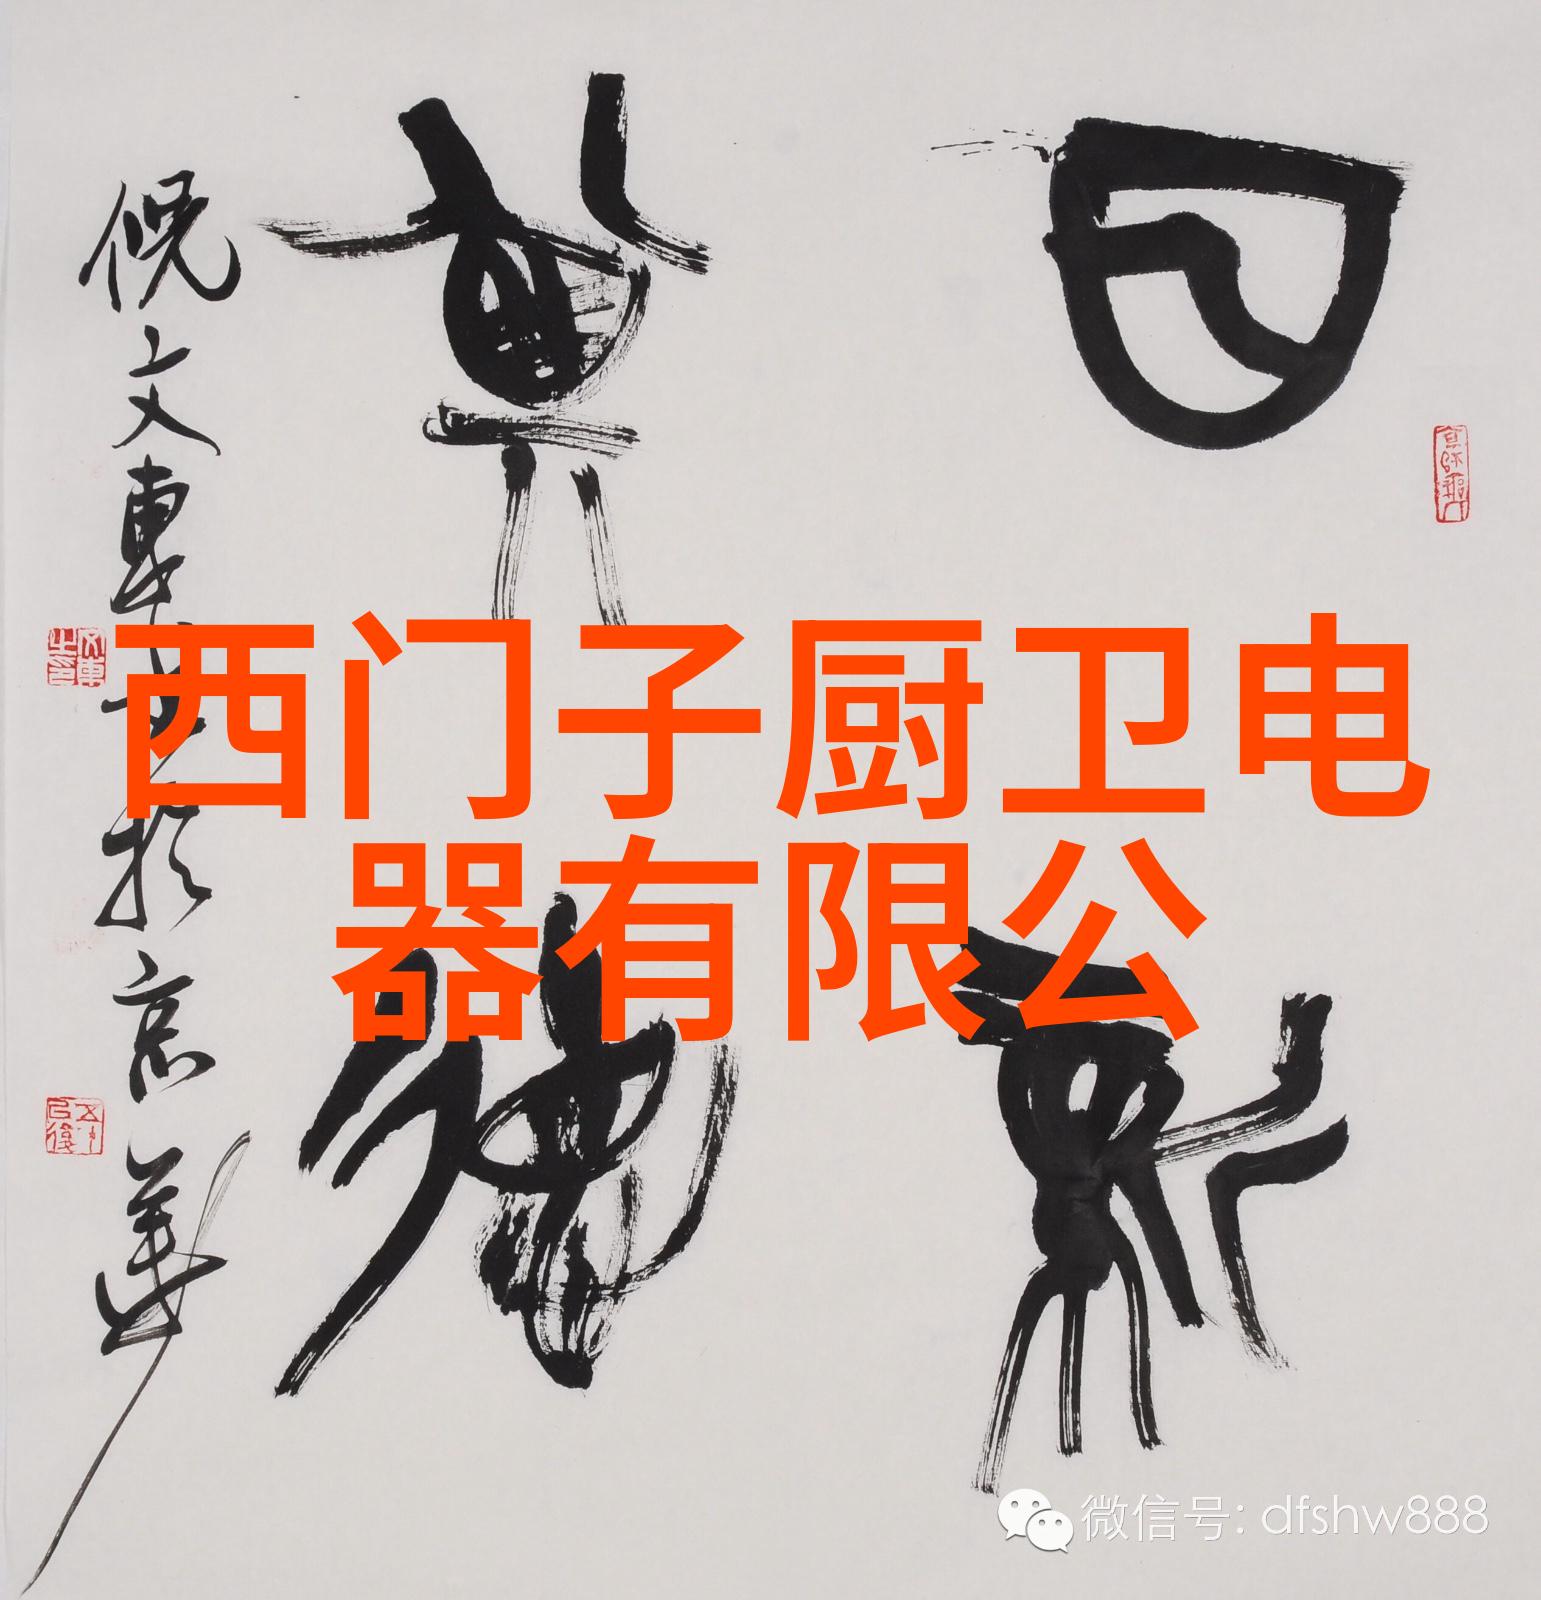 日新
其德
倪文東书於京華
西门子厨卫电
器有限公
微信号: dfshw888